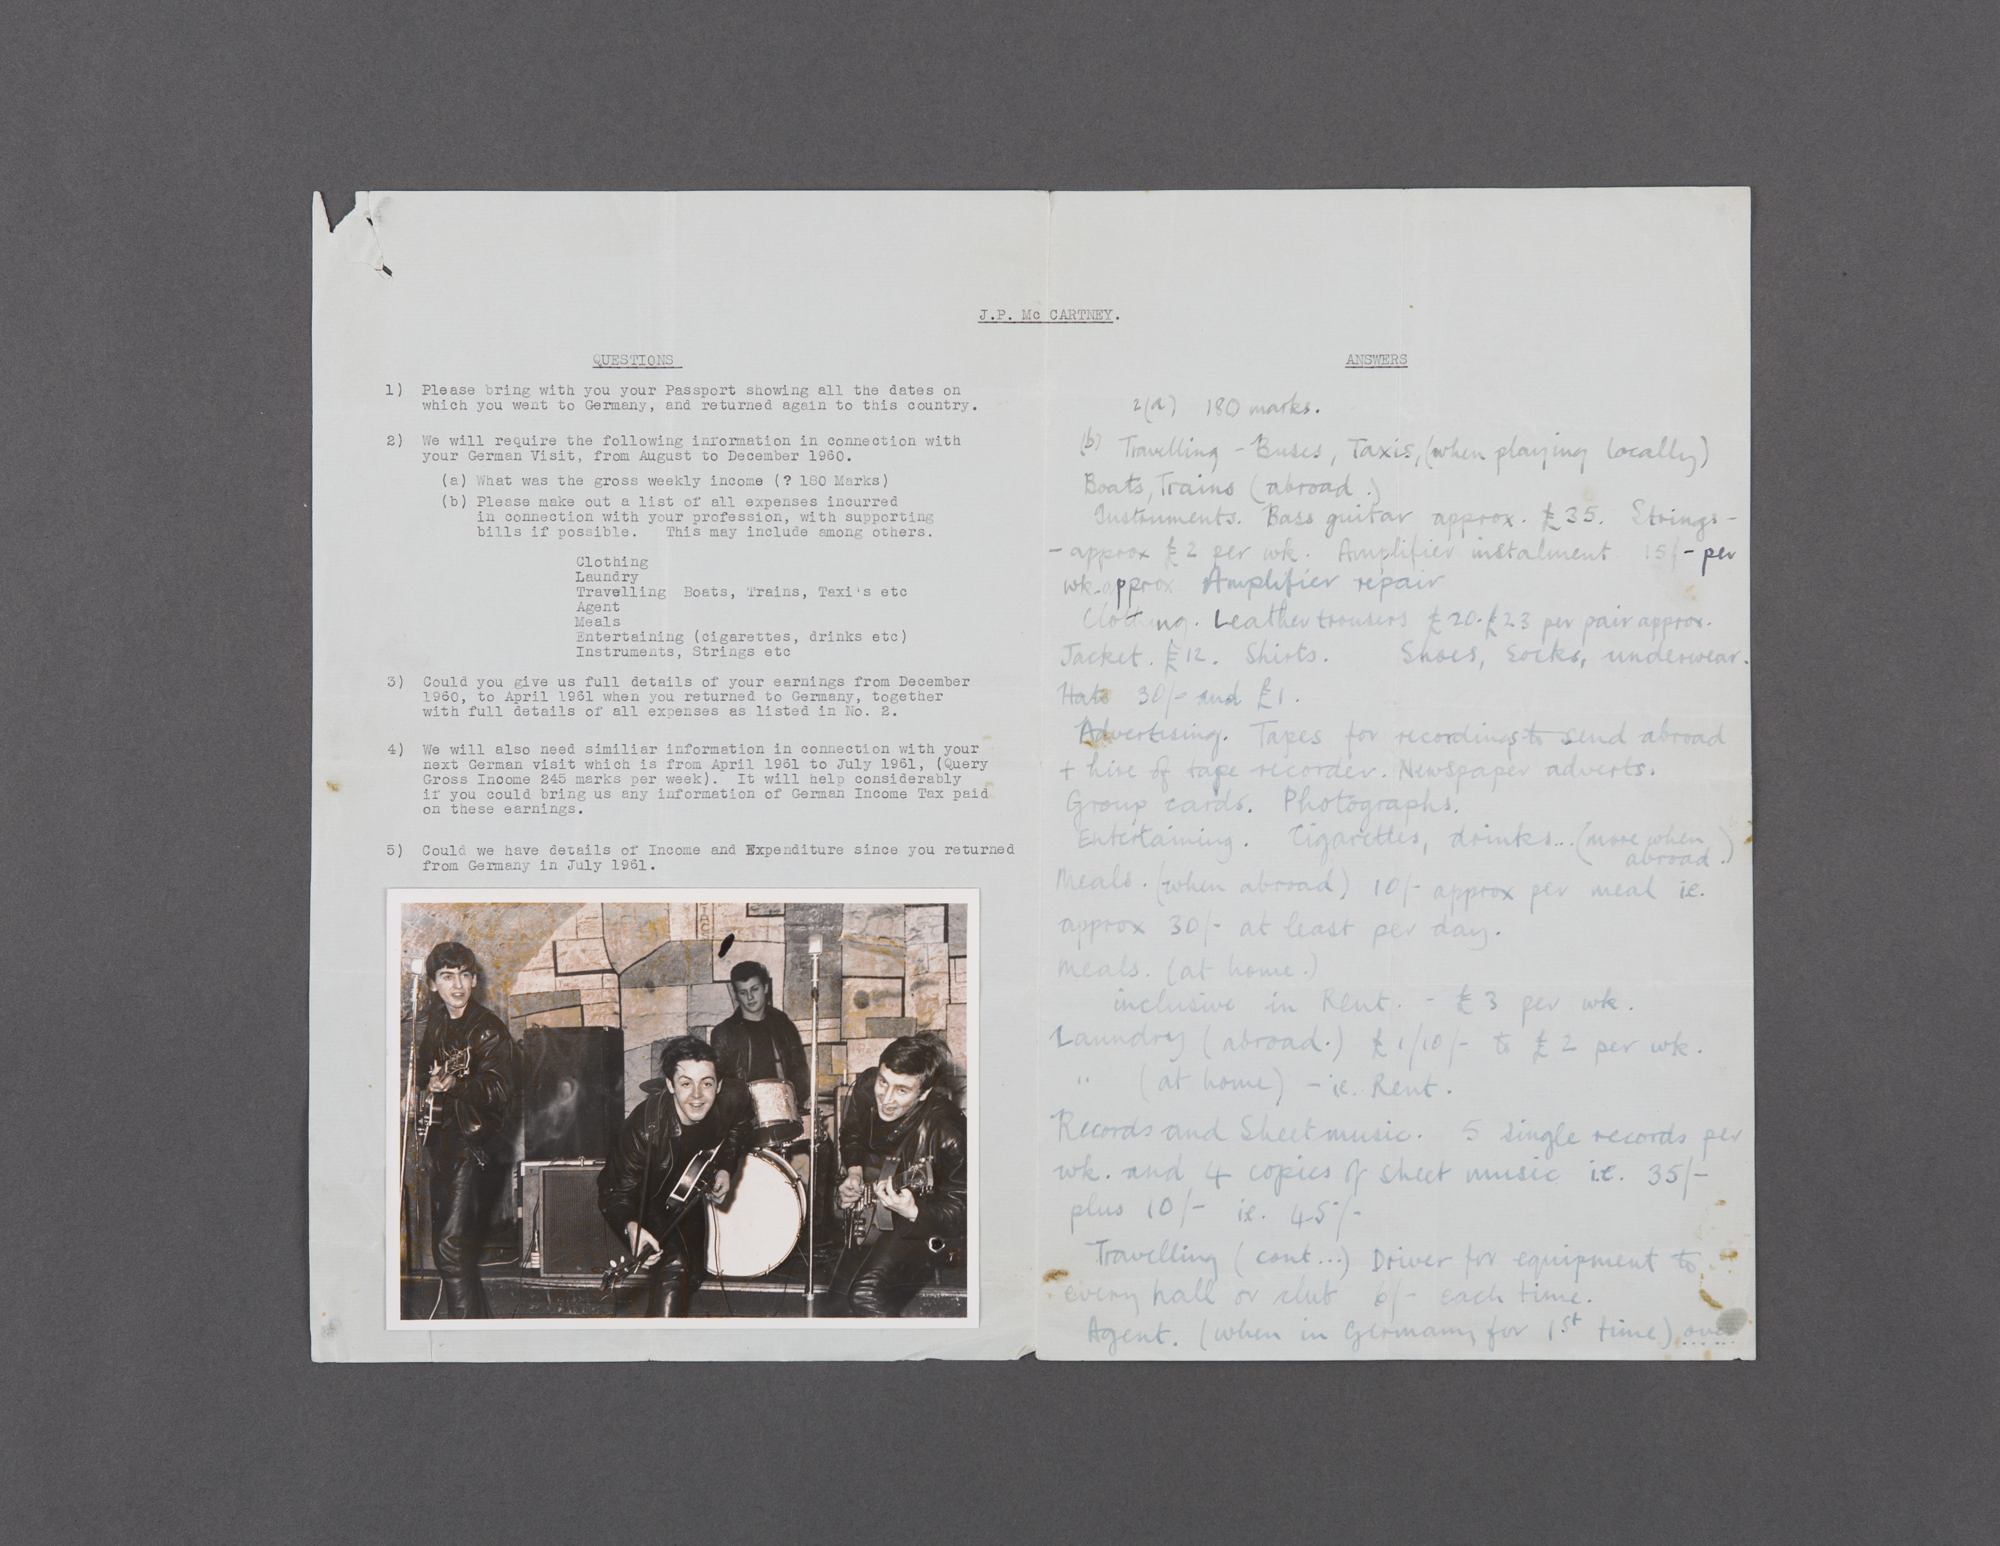 J.P. Mc CARTNEY.
QUESTIONS
1) Please bring with you your Passport showing all the dates on
which you went to Germany, and returned again to this country.
2) We will require the following information in connection with
your German Visit, from August to December 1960.
(a) What was the gross weekly income (? 180 Marks)
(b) Please make out a list of all expenses incurred
in connection with your profession, with supporting
bills if possible. This may include among others.
Clothing
Laundry
Travelling Boats, Trains, Taxi's etc
Agent
Meals
Entertaining (cigarettes, drinks etc)
Instruments, Strings etc
3) Could you give us full details of your earnings from December
1960, to April 1961 when you returned to Germany, together
with full details of all expenses as listed in No. 2.
4) We will also need similiar information in connection with your
next German visit which is from April 1961 to July 1961, (Query
Gross Income 245 marks per week). It will help considerably
if you could bring us any information of German Income Tax paid
on these earnings.
5) Could we have details of Income and Expenditure since you returned
from Germany in July 1961.
ANSWERS
2(a) 180 marks.
(b) Travelling - Buses, Taxis, (when playing locally)
Boats, Trains (abroad.)
Instruments. Bass guitar approx. £35. Strings -
- approx £2 per wk. Amplifier instalment 15/- per
wk. approx Amplifier repair
Clothing. Leather trousers £20-£23 per pair approx.
Jacket. £12. Shirts. Shoes, Socks, underwear.
Hats 30/- and £1.
Advertising. Tapes for recordings to send abroad
+ hire of tape recorder. Newspaper adverts.
Group cards. Photographs.
Entertaining. Cigarettes, drinks... (more when
abroad.)
Meals. (when abroad) 10/- approx per meal ie.
approx 30/- at least per day.
Meals. (at home.)
inclusive in Rent. - £3 per wk.
Laundry (abroad.) £1/10/- to £2 per wk.
" (at home) - ie. Rent.
Records and Sheet music. 5 single records per
wk. and 4 copies of sheet music ie. 35/-
plus 10/- ie. 45/-
Travelling (cont...) Driver for equipment to
every hall or club 6/- each time.
Agent. (when in Germany for 1st time) over